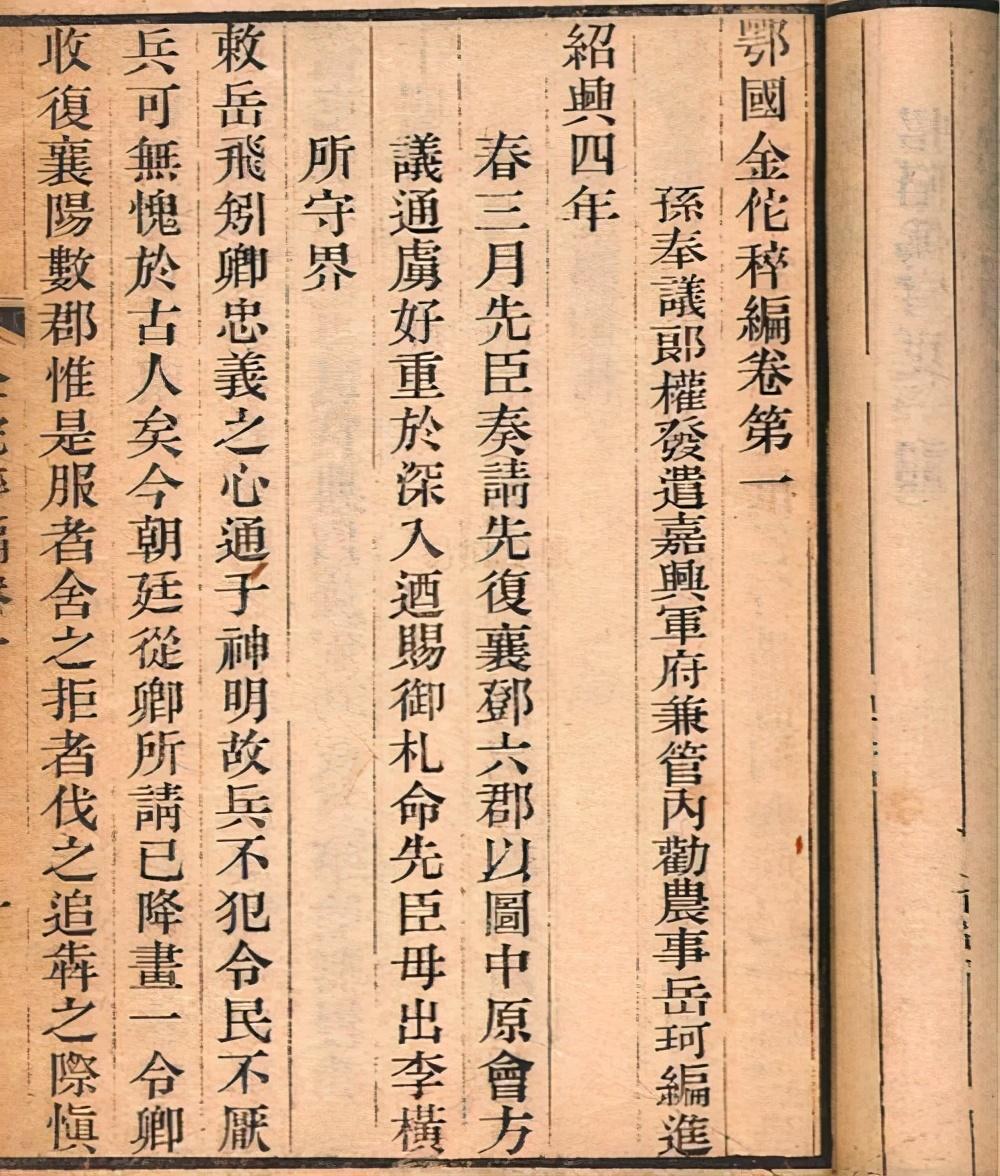 鄂國金佗稡編卷第一
孫奉議郎權發遣嘉興軍府兼管內勸農事岳珂編進
紹興四年
春三月先臣奏請先復襄鄧六郡以圖中原會方
議通虜好重於深入迺賜御札命先臣毋出李橫
所守界
敕岳飛矧卿忠義之心通于神明故兵不犯令民不厭
兵可無愧於古人矣今朝廷從卿所請已降畫一令卿
收復襄陽數郡惟是服者舍之拒者伐之追犇之際慎